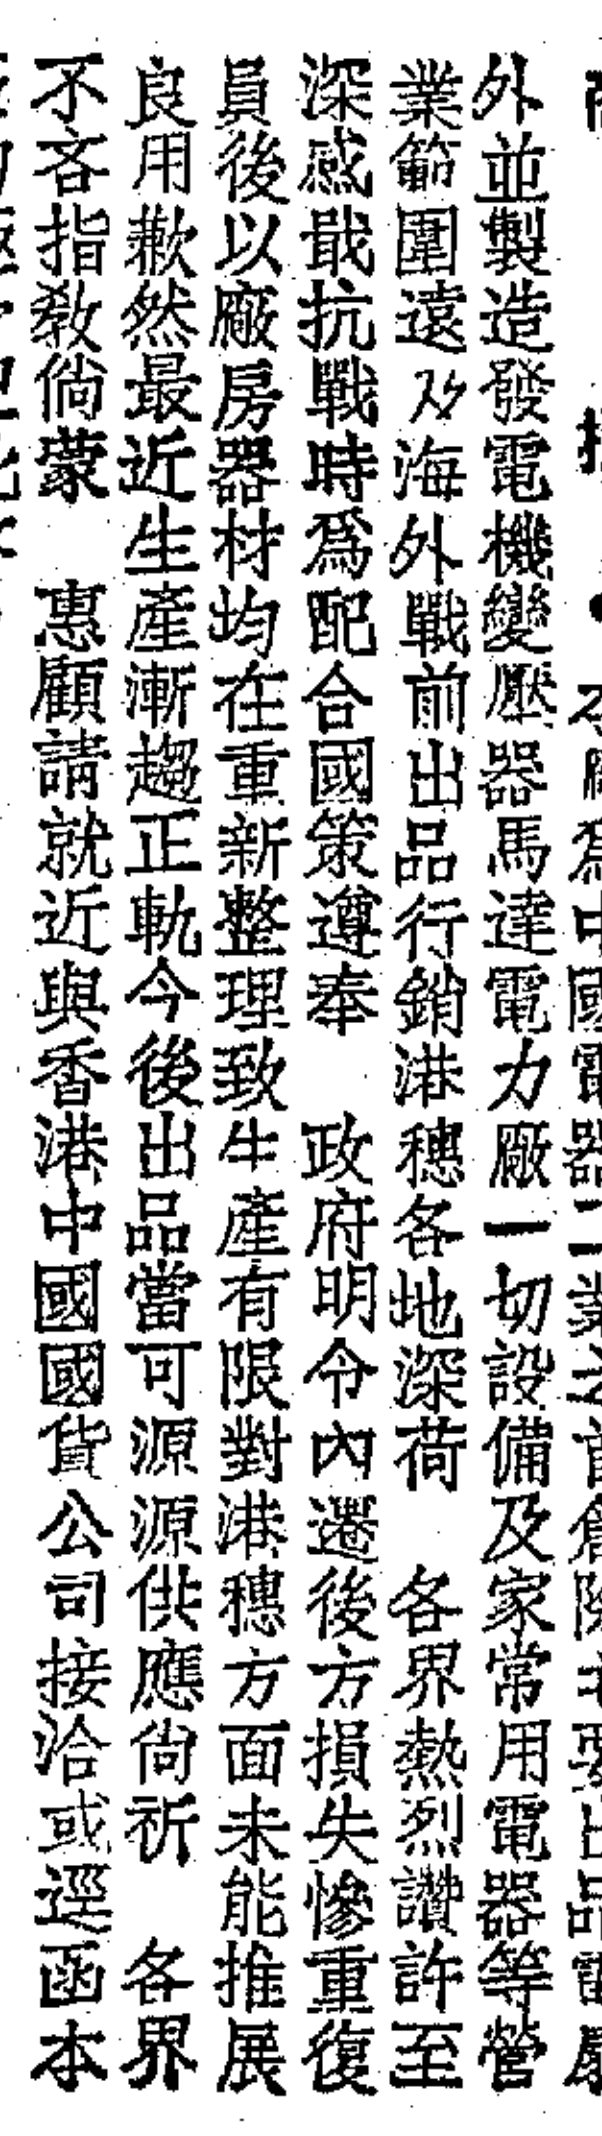 中國電器
外並製造發電機變壓器馬達電力廠一切設備及家常用電器等營
業範圍遠及海外戰前出品行銷港穗各地深荷　各界熱烈讚許至
深感戢抗戰時爲配合國策遵奉　政府明令內遷後方損失慘重復
員後以廠房器材均在重新整理致生產有限對港穗方面未能推展
良用歉然最近生產漸趨正軌今後出品當可源源供應尙祈　各界
不吝指敎倘蒙　惠顧請就近與香港中國國貨公司接洽或逕函本